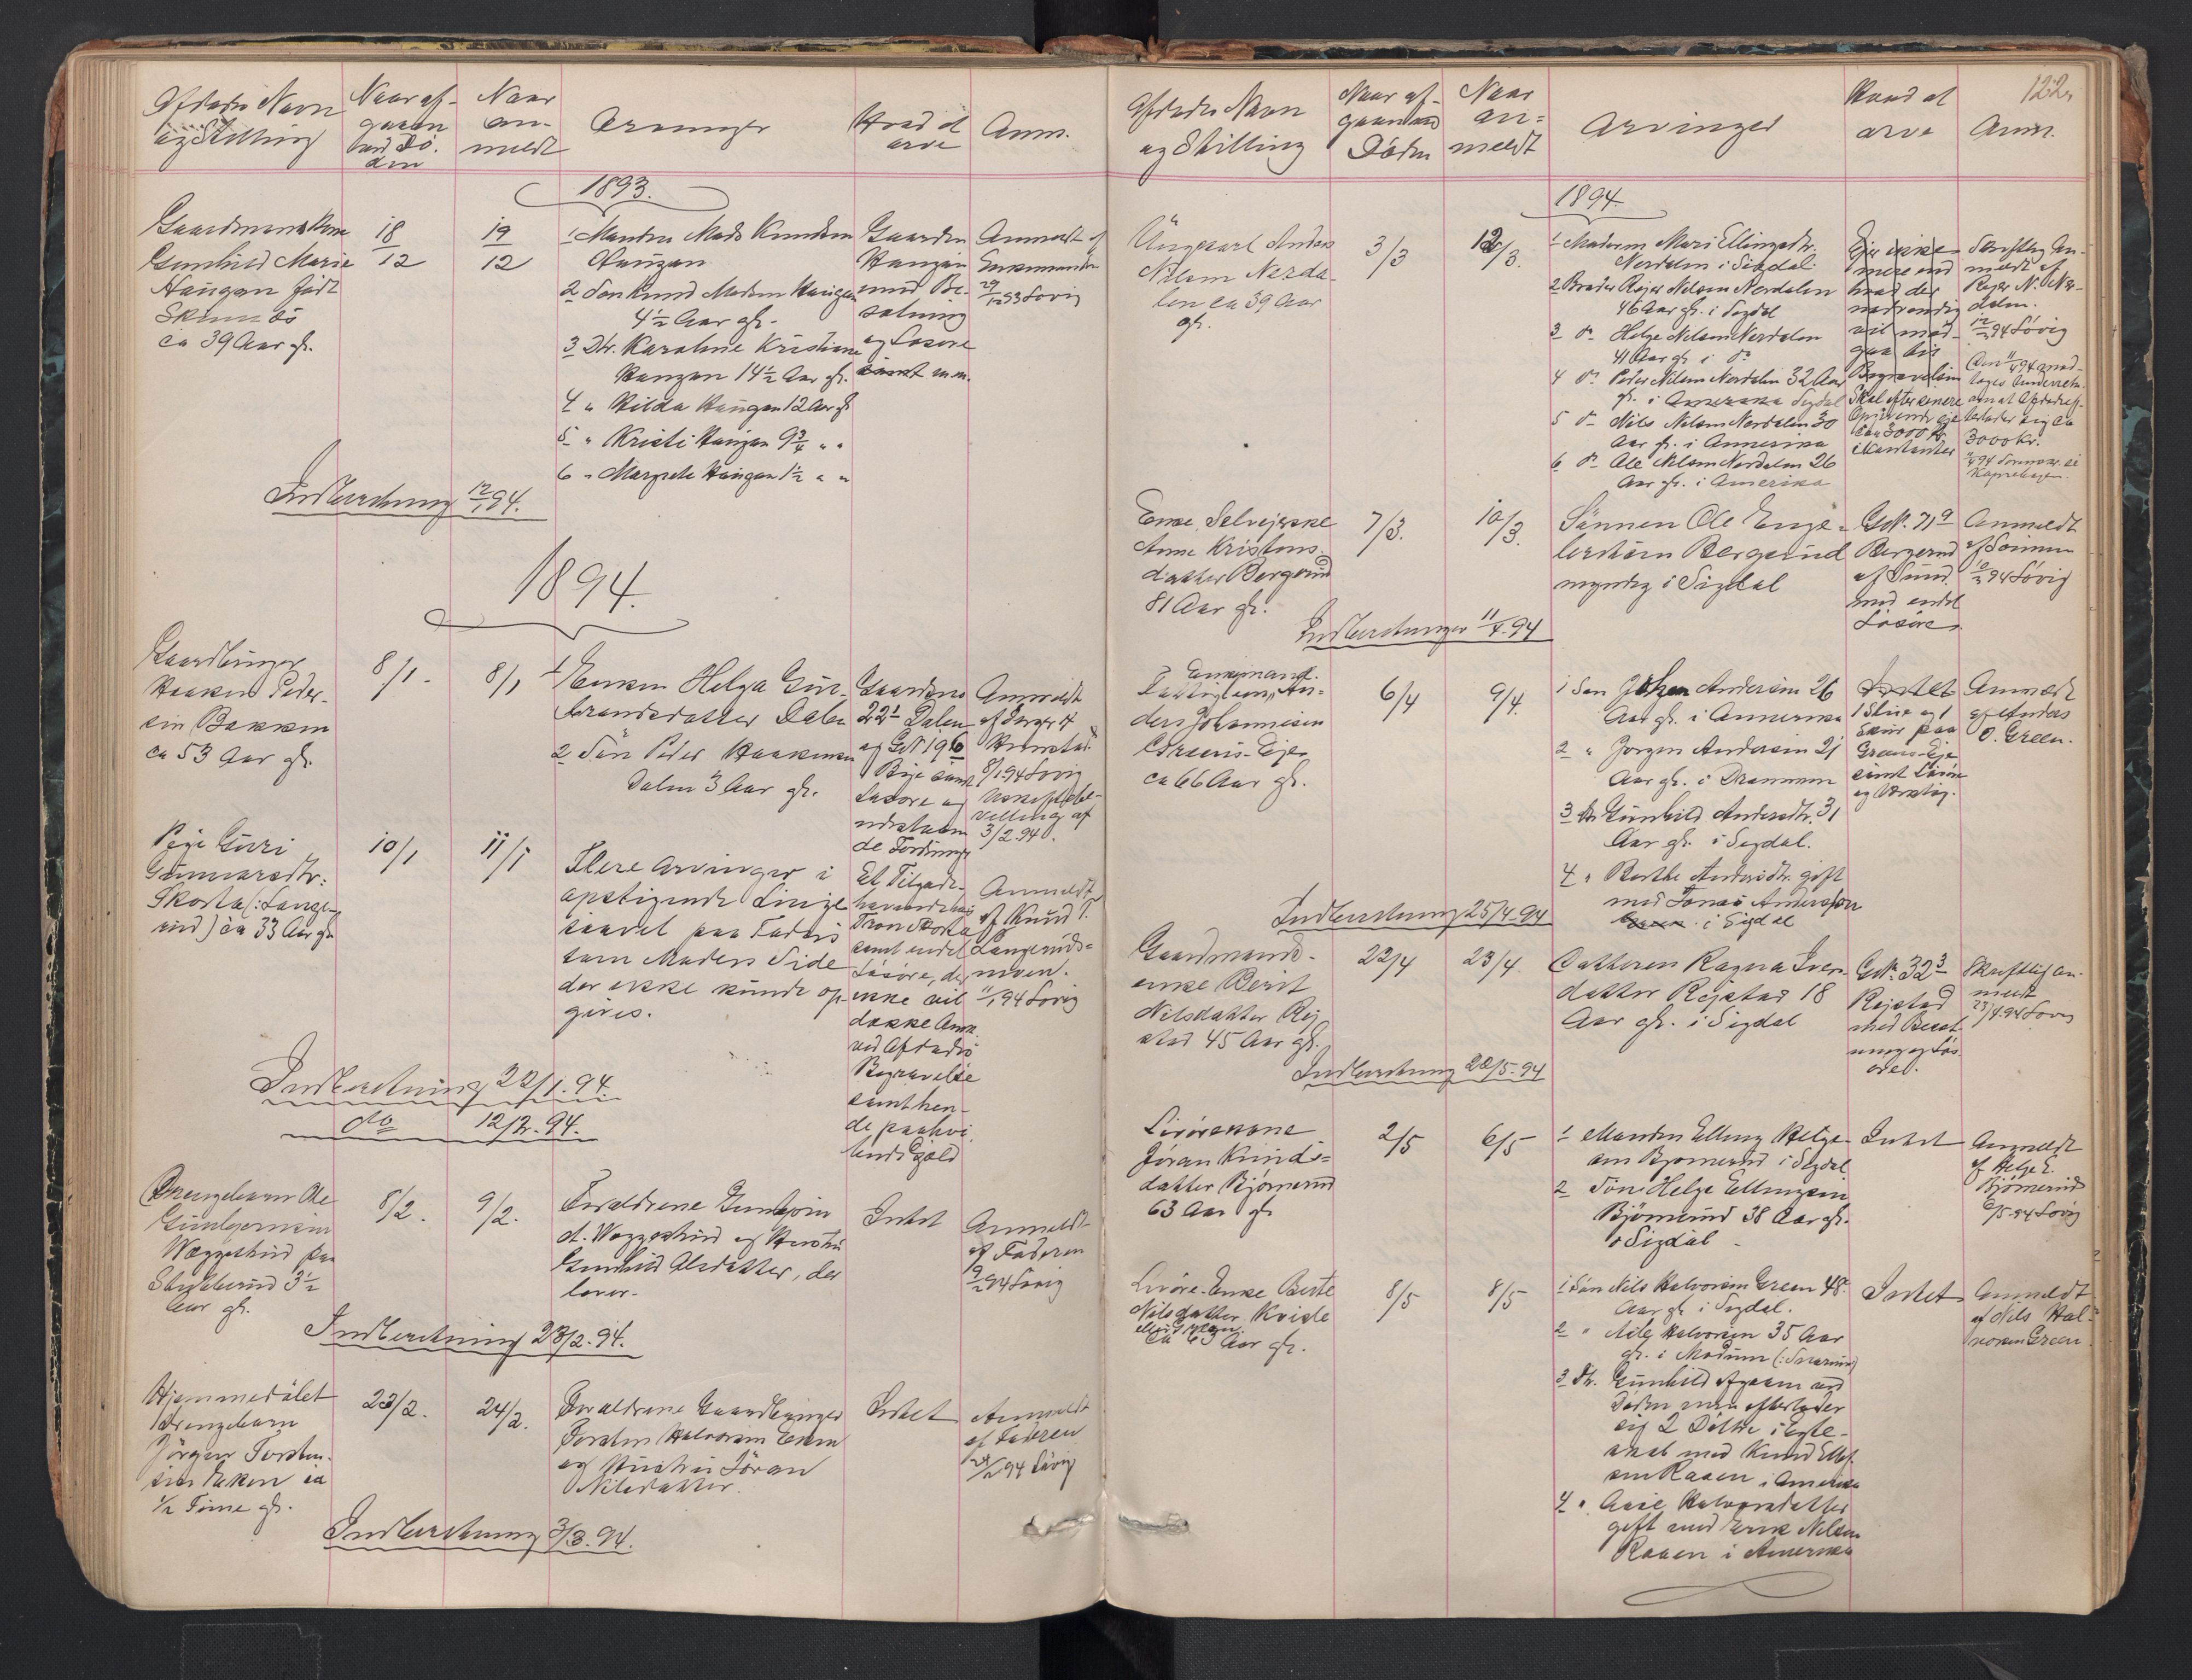 Afdødes Navn
og Stilling
Naar af-
gaaen
ved Dø-
den
Naar
an-
meldt
Arvinger
Hvad at
arve
Anm.
1893.
Gaardmandskone
Gunhild Marie
Haugan født
ca 39 Aar gl.
18/12
19/12
1 Manden Mads Knudsen
Haugan
2 Søn Knud Madsen Haugan
4½ Aar gl.
3 Dtr. Karoline Kristiane
Haugan 14½ Aar gl.
4 " Hilda Haugan 12 Aar gl
5 " Kristi Haugan 9¾ " "
6 " Margrete Haugan 1½ " "
Gaarden
Haugan
med Be-
sætning
og Løsøre
samt m.m.
Anmeldt af
Enkemanden
29/12 93 Lovig
Indberetning 12/1 94.
1894.
Gaardbruger
Haaken Peder-
sen Bakken
ca 53 Aar gl.
8/1
8/1
1 Enken Helga Gul-
brandsdatter Dalen
2 Søn Peder Haakensen
Dalen 3 Aar gl.
Gaardene
22¹ Dalen
og GN 196
Bye samt
Løsøre og
udestaaen
de Fordringer
Anmeldt
af
8/1 94 Lovig
Uskiftebe-
villing af
3/2 94.
Pige Guri
Gunnarsdtr.
Skorta (: Lange-
rud) ca 33 Aar gl
10/1
11/1
Flere Arvinger i
opstigende Linje
saavel paa Faders
som Moders Side
der ikke kunde op-
gives.
Et Tilgode-
havende hos
Tron Skorta
samt endel
Løsøre, der
ikke vil
dække Omk.
ved Afdødes
Begravelse
samt hen-
de paahvi-
lende Gjæld
Anmeldt
af Knud T.
Langeruds-
moen.
11/1 94 Lovig
Indberetning 22/1. 94.
do 12/2. 94.
Drengebarn Ole
Gunbjørnsen
Væggeshud paa
3½
Aar gl.
8/2.
9/2.
Forældrene Gunbjørn
O. Væggeshud og Hustru
Gunhild Olsdatter, der
lever.
Intet
Anmeldt
af Faderen
9/2 94 Lovig
Indberetning 23/2. 94.
Hjemmedøbt
Drengebarn
Jørgen Torsten-
sen Eken ca
½ Time gl.
23/2.
24/2.
Forældrene Gaardbruger
Torsten Halvorsen Eken
og Hustru Jøran
Nilsdatter.
Intet
Anmeldt
af Faderen
24/2 94 Lovig
Indberetning 3/3. 94.
122
Afdødes Navn
og Stilling
Naar af-
gaaen ved
Døden
Naar
an-
meldt
Arvinger
Hvad at
arve
Anm.
1894.
Ungkarl Anders
Nilsen Nerda-
len ca 39 Aar
gl.
3/3
12/3.
1 Moderen Mari Ellingsdtr.
Nerdalen i Sigdal
2 Broder Reier Nilsen Nerdalen
46 Aar gl. i Sigdal
3 do Helge Nilsen Nerdalen
41 Aar gl i do
4 do Peder Nilsen Nerdalen 32 Aar
gl. i Amerika Sigdal
5 do Nils Nilsen Nerdalen 30
Aar gl. i Amerika
6 do Ole Nilsen Nerdalen 26
Aar gl. i Amerika
Ejer ikke
mere end
hvad der
nødvendig
vil med-
gaa til
Begravelsen
Skal efter senere
Opgivende eje
ca 3000 Kr.
i Kontanter
Skriftlig An-
meldt af
Reier N. Ner-
dalen.
12/3 94 Lovig
3000 Kr.
Enke Selvejerske
Anne Kristens-
datter Bergerud
81 Aar gl.
7/3.
10/3.
Sønnen Ole Enge-
bretsen Bergerud
myndig i Sigdal
GN. 71⁹
Bergerud
af Sund
med endel
Løsøre.
Anmeldt
af Sønnen
10/3 94 Lovig
Indberetninger 11/4. 94
Enkemand.
Fattiglem, An-
ders Johannesen
Greens-Eje
ca 66 Aar gl.
6/4
9/4.
1 Søn Johan Andersen 26
Aar gl. i Amerika
2 " Jørgen Andersen 21
Aar gl. i Drammen
3 Dtr Gunhild Andersdtr. 31
Aar gl. i Sigdal.
4 " Berthe Andersdtr. gift
med Jonas Andersson
i Sigdal
Intet
1 Stue og 1
Skur paa
Greens-Eje
samt Løsøre
og Værktøj.
Anmeldt
af Anders
O. Green.
Indberetning 25/4 94
Gaardmands-
enke Berit
Nilsdatter Rej-
stad 45 Aar gl.
22/4
23/4
Datteren Ragna Ivers-
datter Rejstad 18
Aar gl. i Sigdal
GN. 32³
Rejstad
med Besæt-
ning og Løs-
øre.
Skriftlig an-
meldt
23/4. 94 Lovig
Indberetning 22/5. 94
Livørekone
Jøran Knuds-
datter Bjømerud
63 Aar gl
2/5
6/5
1 Manden Elling Helge-
sen Bjømerud i Sigdal
2 Søn Helge Ellingsen
Bjømerud 38 Aar gl.
i Sigdal
Intet
Anmeldt
af Helge E.
Bjømerud
6/5. 94 Lovig
Livøre-Enke Berte
Nilsdatter Kvisle
Aar gl.
8/5
8/5
1 Søn Nils Halvorsen Green 48
Aar gl i Sigdal.
2 " Halvorsen 35 Aar
gl. i Modum (: Snarum)
3 Dtr. Gunhild Afgaaen ved
Døden men efterlader
sig 2 Døtre i Egte-
skab med Knud
Raaen i Amerika
4 " Halvorsdatter
gift med Erik Nilsen
Raaen i Amerika
Intet
Anmeldt
af Nils Hal-
vorsen Green